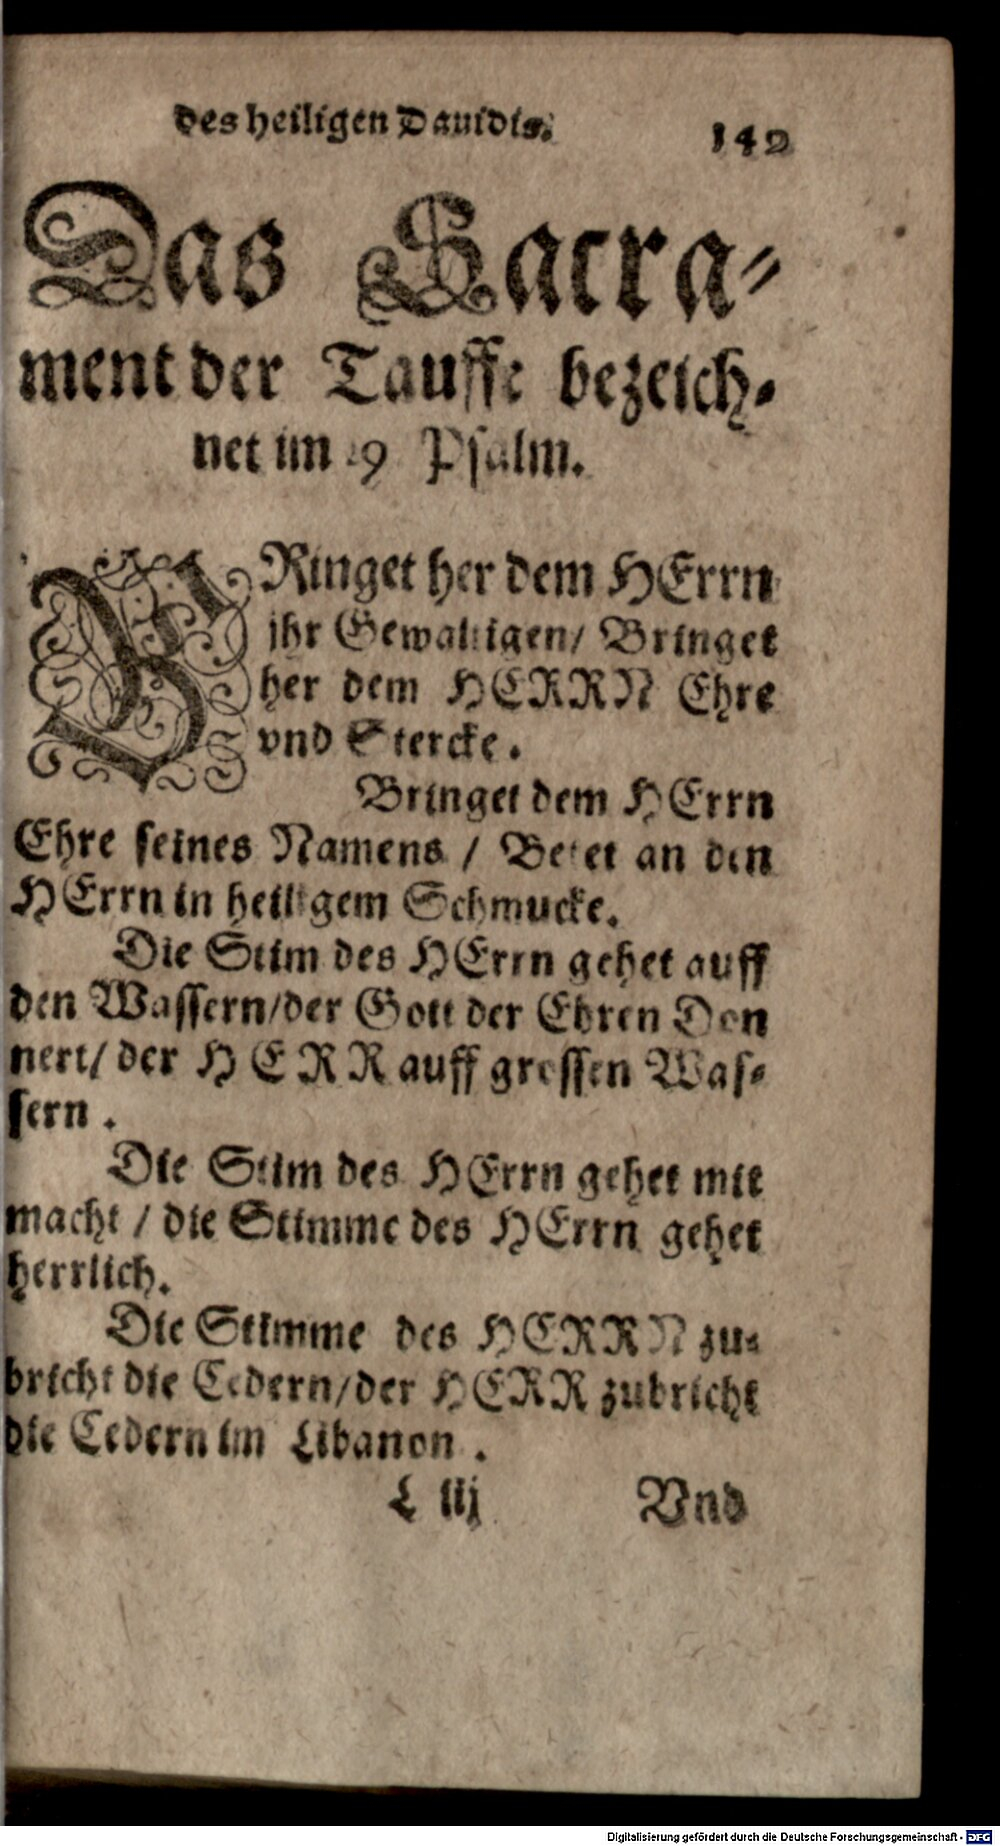 des heiligen Dauidis. 142
Das Sacra=
ment der Tauffe bezeich=
net im 29 Psalm.
BRinget her dem HErrn
jhr Gewaltigen/ Bringet
her dem HERRN Ehre
vnd Stercke.
Bringet dem HErrn
Ehre seines Namens / Betet an den
HErrn in heiligem Schmucke.
Die Stim des HErrn gehet auff
den Wassern/der Gott der Ehren Don
nert/ der HERR auff grossen Was=
sern.
Die Stim des HErrn gehet mit
macht / die Stimme des HErrn gehet
herrlich.
Die Stimme des HERRN zu=
bricht die Cedern/der HERR zubricht
die Cedern im Libanon.
L iij Vnd
Digitalisierung gefördert durch die Deutsche Forschungsgemeinschaft - DFG